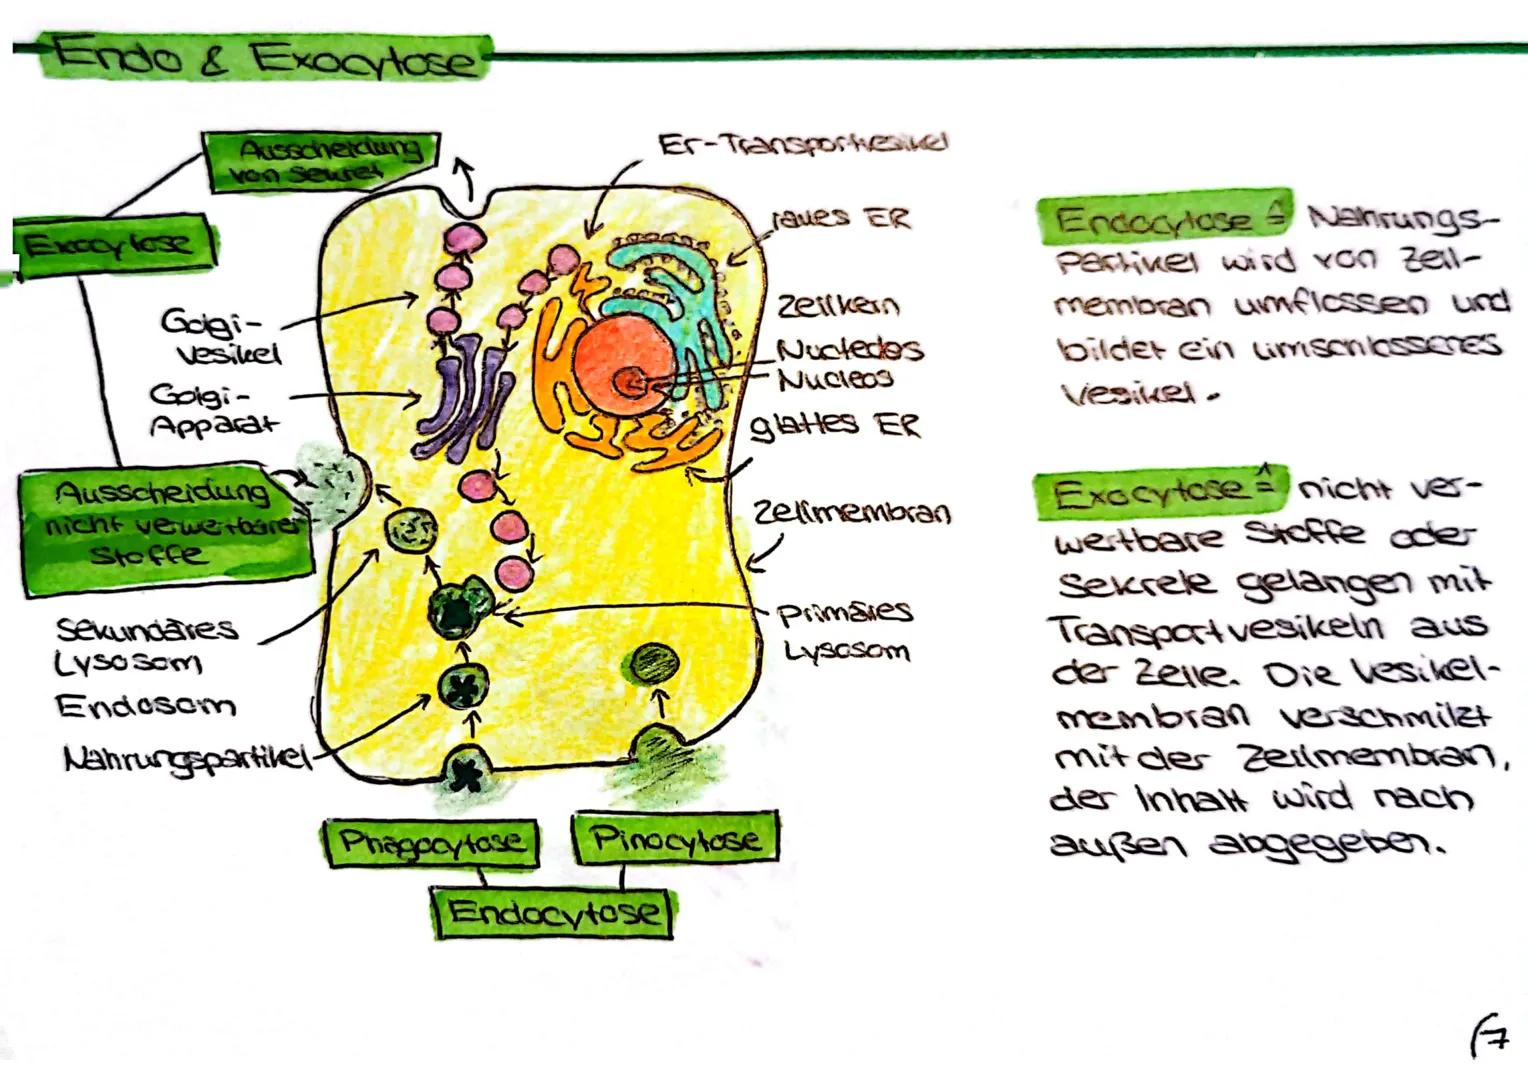 Endo & Exocytose
Ausscheidung
von Sekret
Exocytose
Er-Transportvesikel
raues ER
Golgi-
Vesikel
Zellkern
Nucleolos
Nucleos
Golgi-
Apparat
glattes ER
Ausscheidung
nicht verwertbarer
Stoffe
Zellmembran
Sekundäres
Lysosom
Primäres
Lysosom
Endosom
Nahrungspartikel
Phagocytose
Pinocytose
Endocytose
Endocytose ≙ Nahrungs-
partikel wird von Zell-
membran umflossen und
bildet ein umschlossenes
Vesikel.
Exocytose ≙ nicht ver-
wertbare Stoffe oder
Sekrete gelangen mit
Transportvesikeln aus
der Zelle. Die Vesikel-
membran verschmilzt
mit der Zellmembran,
der Inhalt wird nach
außen abgegeben.